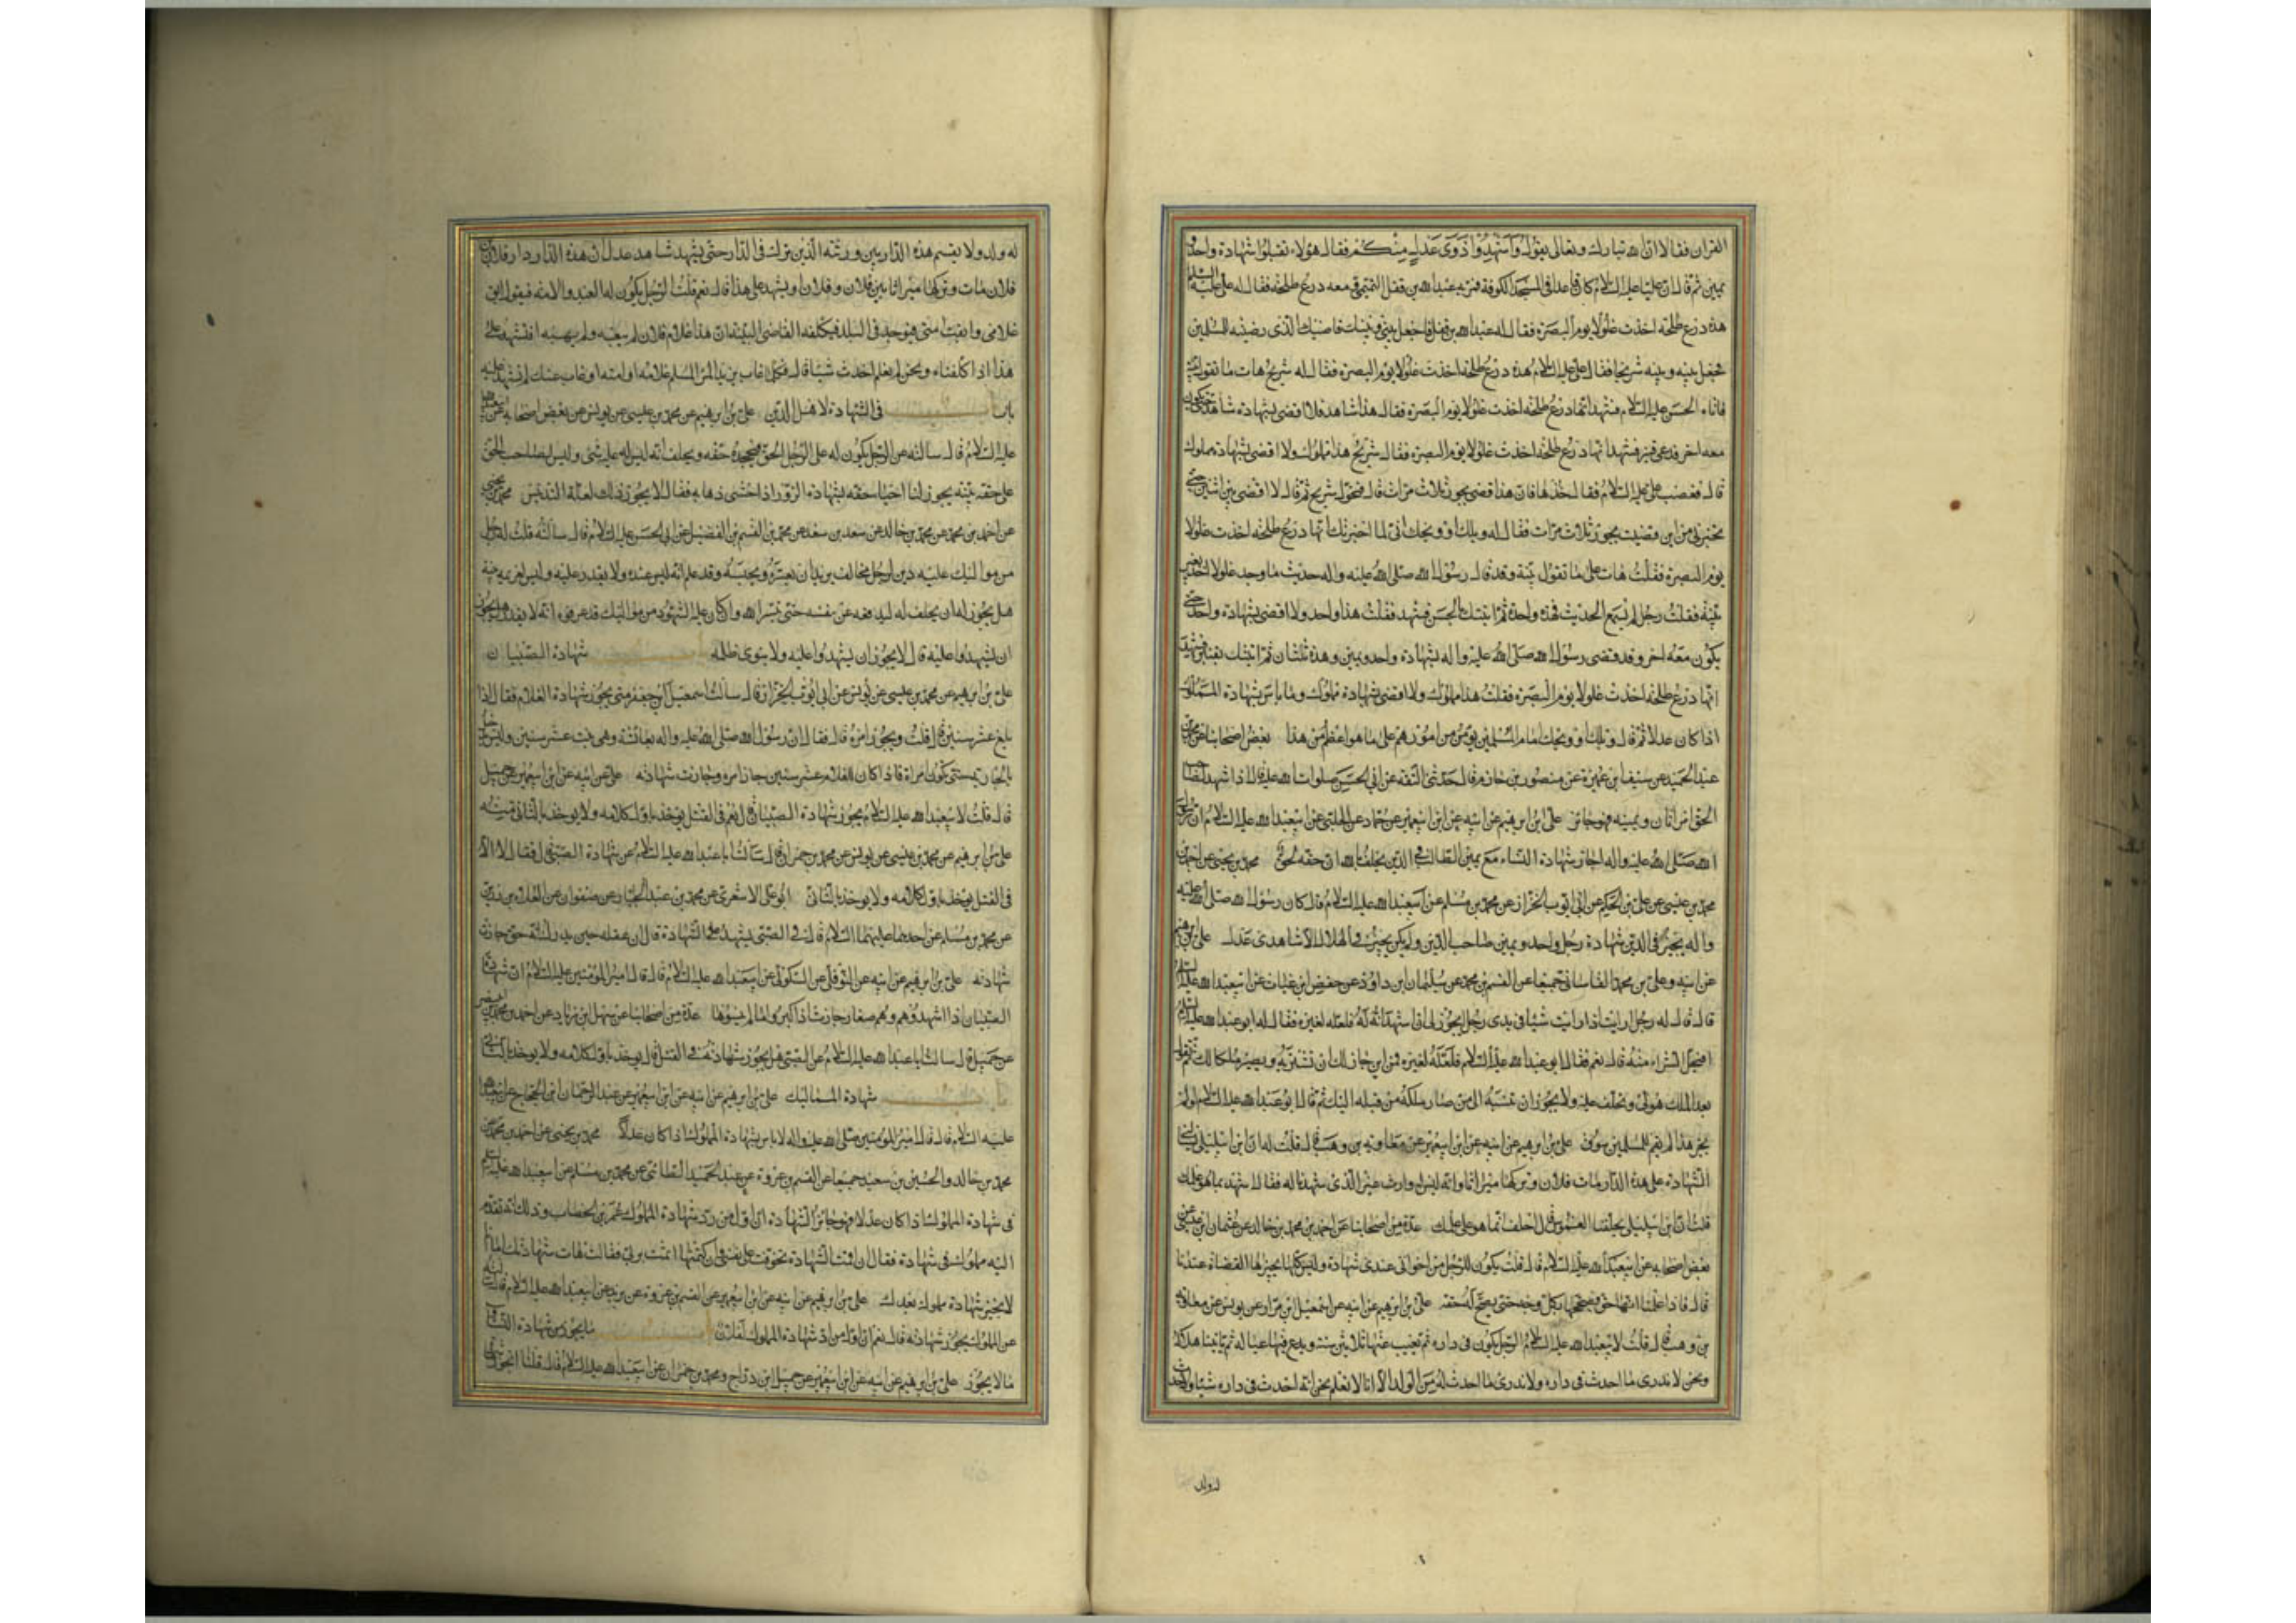 القران فقالا ان الله تبارك وتعالى يقول وأشهدوا ذوى عدل منكم فقال هؤلاء تقبلوا شهادة واحد و
يمين ثم قال ان عليا عليه السلام كان قاعدا فى المسجد الكوفة فمر به عبد الله بن قفل التميمى ومعه درع طلحة فقال له على عليه السلام
هذه درع طلحة اخذت غلولا يوم البصرة فقال له عبد الله بن قفل فاجعل بينى وبينك قاضيك الذى رضيته للمسلمين
فجعل بينه وبينه شريحا فقال على عليه السلام هذه درع طلحة اخذت غلولا يوم البصرة فقال له شريح هات ما تقول بينة
فاتاه الحسن عليه السلام فشهد انها درع طلحة اخذت غلولا يوم البصرة فقال هذا شاهد فلا اقضى بشهادة شاهد حتى يكون
معه اخر فدعى قنبر فشهد انها درع طلحة اخذت غلولا يوم البصرة فقال شريح هذا مملوك ولا اقضى بشهادة مملوك
قال فغضب على عليه السلام فقال خذها فان هذا قضى بجور ثلاث مرات قال فتحول شريح ثم قال لا اقضى بين اثنين حتى
تخبرنى من اين قضيت بجور ثلاث مرات فقال له ويلك او ويحك انى لما اخبرتك انها درع طلحة اخذت غلولا
يوم البصرة فقلت هات على ما تقول بينة وقد قال رسول الله صلى الله عليه واله حيث ما وجد غلول اخذ بغير
بينة فقلت رجل لم يسمع الحديث فهذه واحدة ثم اتيتك الحسن فشهد فقلت هذا واحد ولا اقضى بشهادة واحد حتى
يكون معه اخر وقد قضى رسول الله صلى الله عليه واله بشهادة واحد ويمين وهذه ثنتان ثم اتيتك بقنبر فشهد
انها درع طلحة اخذت غلولا يوم البصرة فقلت هذا مملوك ولا اقضى بشهادة مملوك وما باس بشهادة المملوك
اذا كان عدلا ثم قال ويلك او ويحك امام المسلمين يؤمن من امورهم على ما هو اعظم من هذا بعض اصحابنا عن محمد بن
عبد الحميد عن سيف بن عميرة عن منصور بن حازم قال حدثنى الثقة عن ابى الحسن صلوات الله عليه قال اذا شهد لصاحب
الحق امراتان ويمينه فهو جائز على ابن ابراهيم عن ابيه عن ابن ابى عمير عن حماد عن الحلبى عن ابى عبد الله عليه السلام ان رسول
الله صلى الله عليه واله اجاز شهادة النساء مع يمين الطالب فى الدين يحلف بالله ان حقه لحق محمد بن يحيى عن احمد بن
محمد بن عيسى عن على بن الحكم عن ابى ايوب الخزاز عن محمد بن مسلم عن ابى عبد الله عليه السلام قال كان رسول الله صلى الله عليه
واله يجيز فى الدين شهادة رجل واحد ويمين صاحب الدين ولم يكن يجيز فى الهلال الا شاهدى عدل على بن ابراهيم
عن ابيه وعلى بن محمد القاسانى جميعا عن القسم بن محمد عن سليمان ابن داود عن حفص ابن غياث عن ابى عبد الله عليه السلام
قال قال له رجل ارايت اذا رايت شيئا فى يدى رجل ايجوز لى ان اشهد انه له فلعله لغيره فقال له ابو عبد الله عليه السلام
افيحل الشراء منه قال نعم فقال ابو عبد الله عليه السلام فلعله لغيره فمن اين جاز لك ان تشتريه ويصير ملكا لك ثم تقول
بعد الملك هو لى وتحلف عليه ولا يجوز ان تنسبه الى من صار ملكه من قبله اليك ثم قال ابو عبد الله عليه السلام لو لم
يجز هذا لم يقم للمسلمين سوق على بن ابراهيم عن ابيه عن ابن ابى عمير عن معاوية بن وهب قال قلت له ان ابن ابى ليلى يسئلنى
الشهادة على هذه الدار مات فلان وتركها ميراثا وانه ليس له وارث غير الذى شهدنا له فقال اشهد بما هو علمك
قلت ان ابن ابى ليلى يحلفنا الغموس قال احلف انما هو على علمك عدة من اصحابنا عن احمد بن محمد بن خالد عن عثمان ابن عيسى عن
بعض اصحابه عن ابى عبد الله عليه السلام قال قلت يكون للرجل من اخوانى عندى شهادة وليس كلها يجيزها القضاة عندنا
قال فاذا علمت انها حق فصححها بكل وجه حتى يصح له حقه على بن ابراهيم عن ابيه عن اسمعيل ابن مرار عن يونس عن معاوية
بن وهب قال قلت لابى عبد الله عليه السلام الرجل يكون فى داره ثم يغيب عنها ثلاثين سنة ويدع فيها عياله ثم ياتينا هلاكه
ونحن لا ندرى ما احدث فى داره ولا ندرى ما احدث له من الولد الا انا لا نعلم نحن انه احدث فى داره شيئا ولا حدث
له ولد
له ولد ولا يقسم هذه الدار بين ورثته الذين ترك فى الدار حتى يشهد شاهد عدل ان هذه الدار دار فلان بن
فلان مات وتركها ميراثا بين فلان وفلان او يشهد على هذا قال نعم قلت الرجل يكون له العبد والامة فيقول ابق
غلامى وابقت امتى فيوجد فى البلد فيكلفه القاضى البينة ان هذا غلام فلان لم يبعه ولم يهبه افنشهد على
هذا اذا كلفناه ونحن لم نعلم احدث شيئا قال فكلما غاب من يد المرء المسلم غلامه او امته او غاب عنك لم تشهد عليه
باب فى الشهادة لاهل الدين على بن ابراهيم عن محمد بن عيسى عن يونس عن بعض اصحابه عن ابى عبد الله
عليه السلام قال سالته عن الرجل يكون له على الرجل الحق فيجحده حقه ويحلف انه ليس له عليه شئ وليس لصاحب الحق
على حقه بينة يجوز لنا احياء حقه بشهادة الزور اذا خشى ذهابه فقال لا يجوز ذلك لعلة التدليس محمد بن يحيى
عن احمد بن محمد عن محمد بن خالد عن سعد بن سعد عن محمد بن القسم بن الفضيل عن ابى الحسن عليه السلام قال سالته قلت له رجل
من مواليك عليه دين لرجل مخالف يريد ان يعسره ويحبسه وقد علم انه ليس عنده ولا يقدر عليه وليس لغريمه بينة
هل يجوز له ان يحلف له ليدفعه عن نفسه حتى ييسر الله وان كان عليه الشهود من مواليك قد عرفوه انه لا يقدر هل يجوز
ان يشهدوا عليه قال لا يجوز ان يشهدوا عليه ولا ينوى ظلمه شهادة الصبيان
على بن ابراهيم عن محمد بن عيسى عن يونس عن ابى ايوب الخزاز قال سالت اسمعيل ابن جعفر متى يجوز شهادة الغلام فقال اذا
بلغ عشر سنين قال قلت ويجوز امره قال فقال ان رسول الله صلى الله عليه واله بعائشة وهى بنت عشر سنين وليس يدخل
بالجارية حتى تكون امراة فاذا كان للغلام عشر سنين جاز امره وجازت شهادته على عن ابيه عن ابن ابى عمير عن جميل
قال قلت لابى عبد الله عليه السلام يجوز شهادة الصبيان قال نعم فى القتل يوخذ باول كلامه ولا يوخذ بالثانى منه
على بن ابراهيم عن محمد بن عيسى عن يونس عن محمد بن حمران قال سالت ابا عبد الله عليه السلام عن شهادة الصبى قال فقال لا الا
فى القتل يوخذ باول كلامه ولا يوخذ بالثانى ابو على الاشعرى عن محمد بن عبد الجبار عن صفوان عن العلاء بن رزين
عن محمد بن مسلم عن احدهما عليهما السلام قال فى الصبى يشهد على الشهادة قال ان عقله حين يدرك انه حق جازت
شهادته على بن ابراهيم عن ابيه عن النوفلى عن السكونى عن ابى عبد الله عليه السلام قال قال امير المؤمنين عليه السلام ان شهادة
الصبيان اذا اشهدوهم وهم صغار جازت اذا كبروا ما لم ينسوها عدة من اصحابنا عن سهل ابن زياد عن احمد بن محمد بن ابى نصر
عن جميل قال سالت ابا عبد الله عليه السلام عن الصبى هل يجوز شهادته فى القتل قال يوخذ باول كلامه ولا يوخذ بالثانى
باب شهادة المماليك على بن ابراهيم عن ابيه عن ابن ابى عمير عن عبد الرحمان ابن الحجاج عن ابى عبد الله
عليه السلام قال قال امير المؤمنين صلى الله عليه واله لا باس بشهادة المملوك اذا كان عدلا محمد بن يحيى عن احمد بن محمد عن
محمد بن خالد والحسين بن سعيد جميعا عن القسم بن عروة عن عبد الحميد الطائى عن محمد بن مسلم عن ابى عبد الله عليه السلام
فى شهادة المملوك اذا كان عدلا فهو جائز الشهادة ان اول من رد شهادة المملوك عمر بن الخطاب وذلك انه تقدم
اليه مملوك فى شهادة فقال ان اقمت الشهادة تخوفت على نفسى وان كتمتها اثمت بربى فقال هات شهادتك اما انا
لا نجيز شهادة مملوك بعدك على بن ابراهيم عن ابيه عن ابن ابى عمير عن القسم بن عروة عن بريد عن ابى عبد الله عليه السلام قال سالته
عن المملوك يجوز شهادته قال نعم ان اول من رد شهادة المملوك لفلان ما يجوز من شهادة النساء و
ما لا يجوز على بن ابراهيم عن ابيه عن ابن ابى عمير عن جميل ابن دراج ومحمد بن حمران عن ابى عبد الله عليه السلام قال قلنا ايجوز شهادة